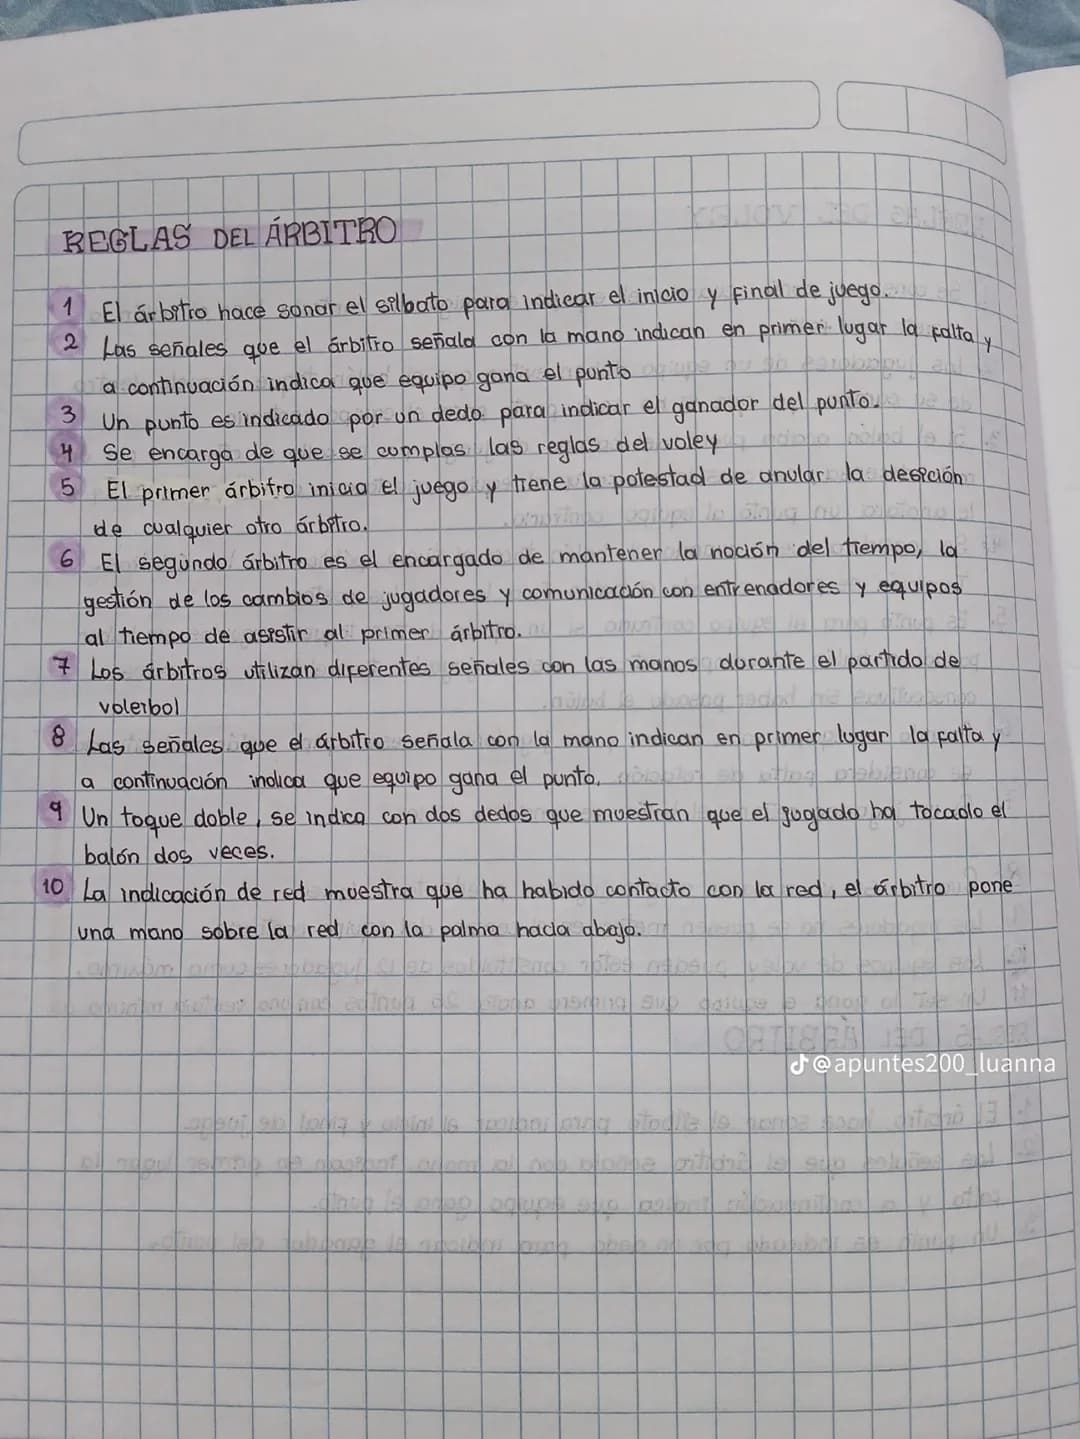 REGLAS DEL ÁRBITRO
1 El árbitro hace sonar el silbato para indicar el inicio y final de juego.
2 Las señales que el árbitro señala con la mano indican en primer lugar la falta y
a continuación indica que equipo gana el punto
3 Un punto es indicado por un dedo para indicar el ganador del punto.
4 Se encarga de que se complas las reglas del voley
5 El primer árbitro inicia el juego y tiene la potestad de anular la desición
de cualquier otro árbitro.
6 El segundo árbitro es el encargado de mantener la noción del tiempo, la
gestión de los cambios de jugadores y comunicación con entrenadores y equipos
al tiempo de asistir al primer árbitro.
7 Los árbitros utilizan diferentes señales con las manos durante el partido de
voleibol
8 Las señales que el árbitro señala con la mano indican en primer lugar la falta y
a continuación indica que equipo gana el punto.
9 Un toque doble, se indica con dos dedos que muestran que el jugado ha tocado el
balón dos veces.
10 La indicación de red muestra que ha habido contacto con la red, el árbitro pone
una mano sobre la red con la palma hacia abajo.
@apuntes200_luanna